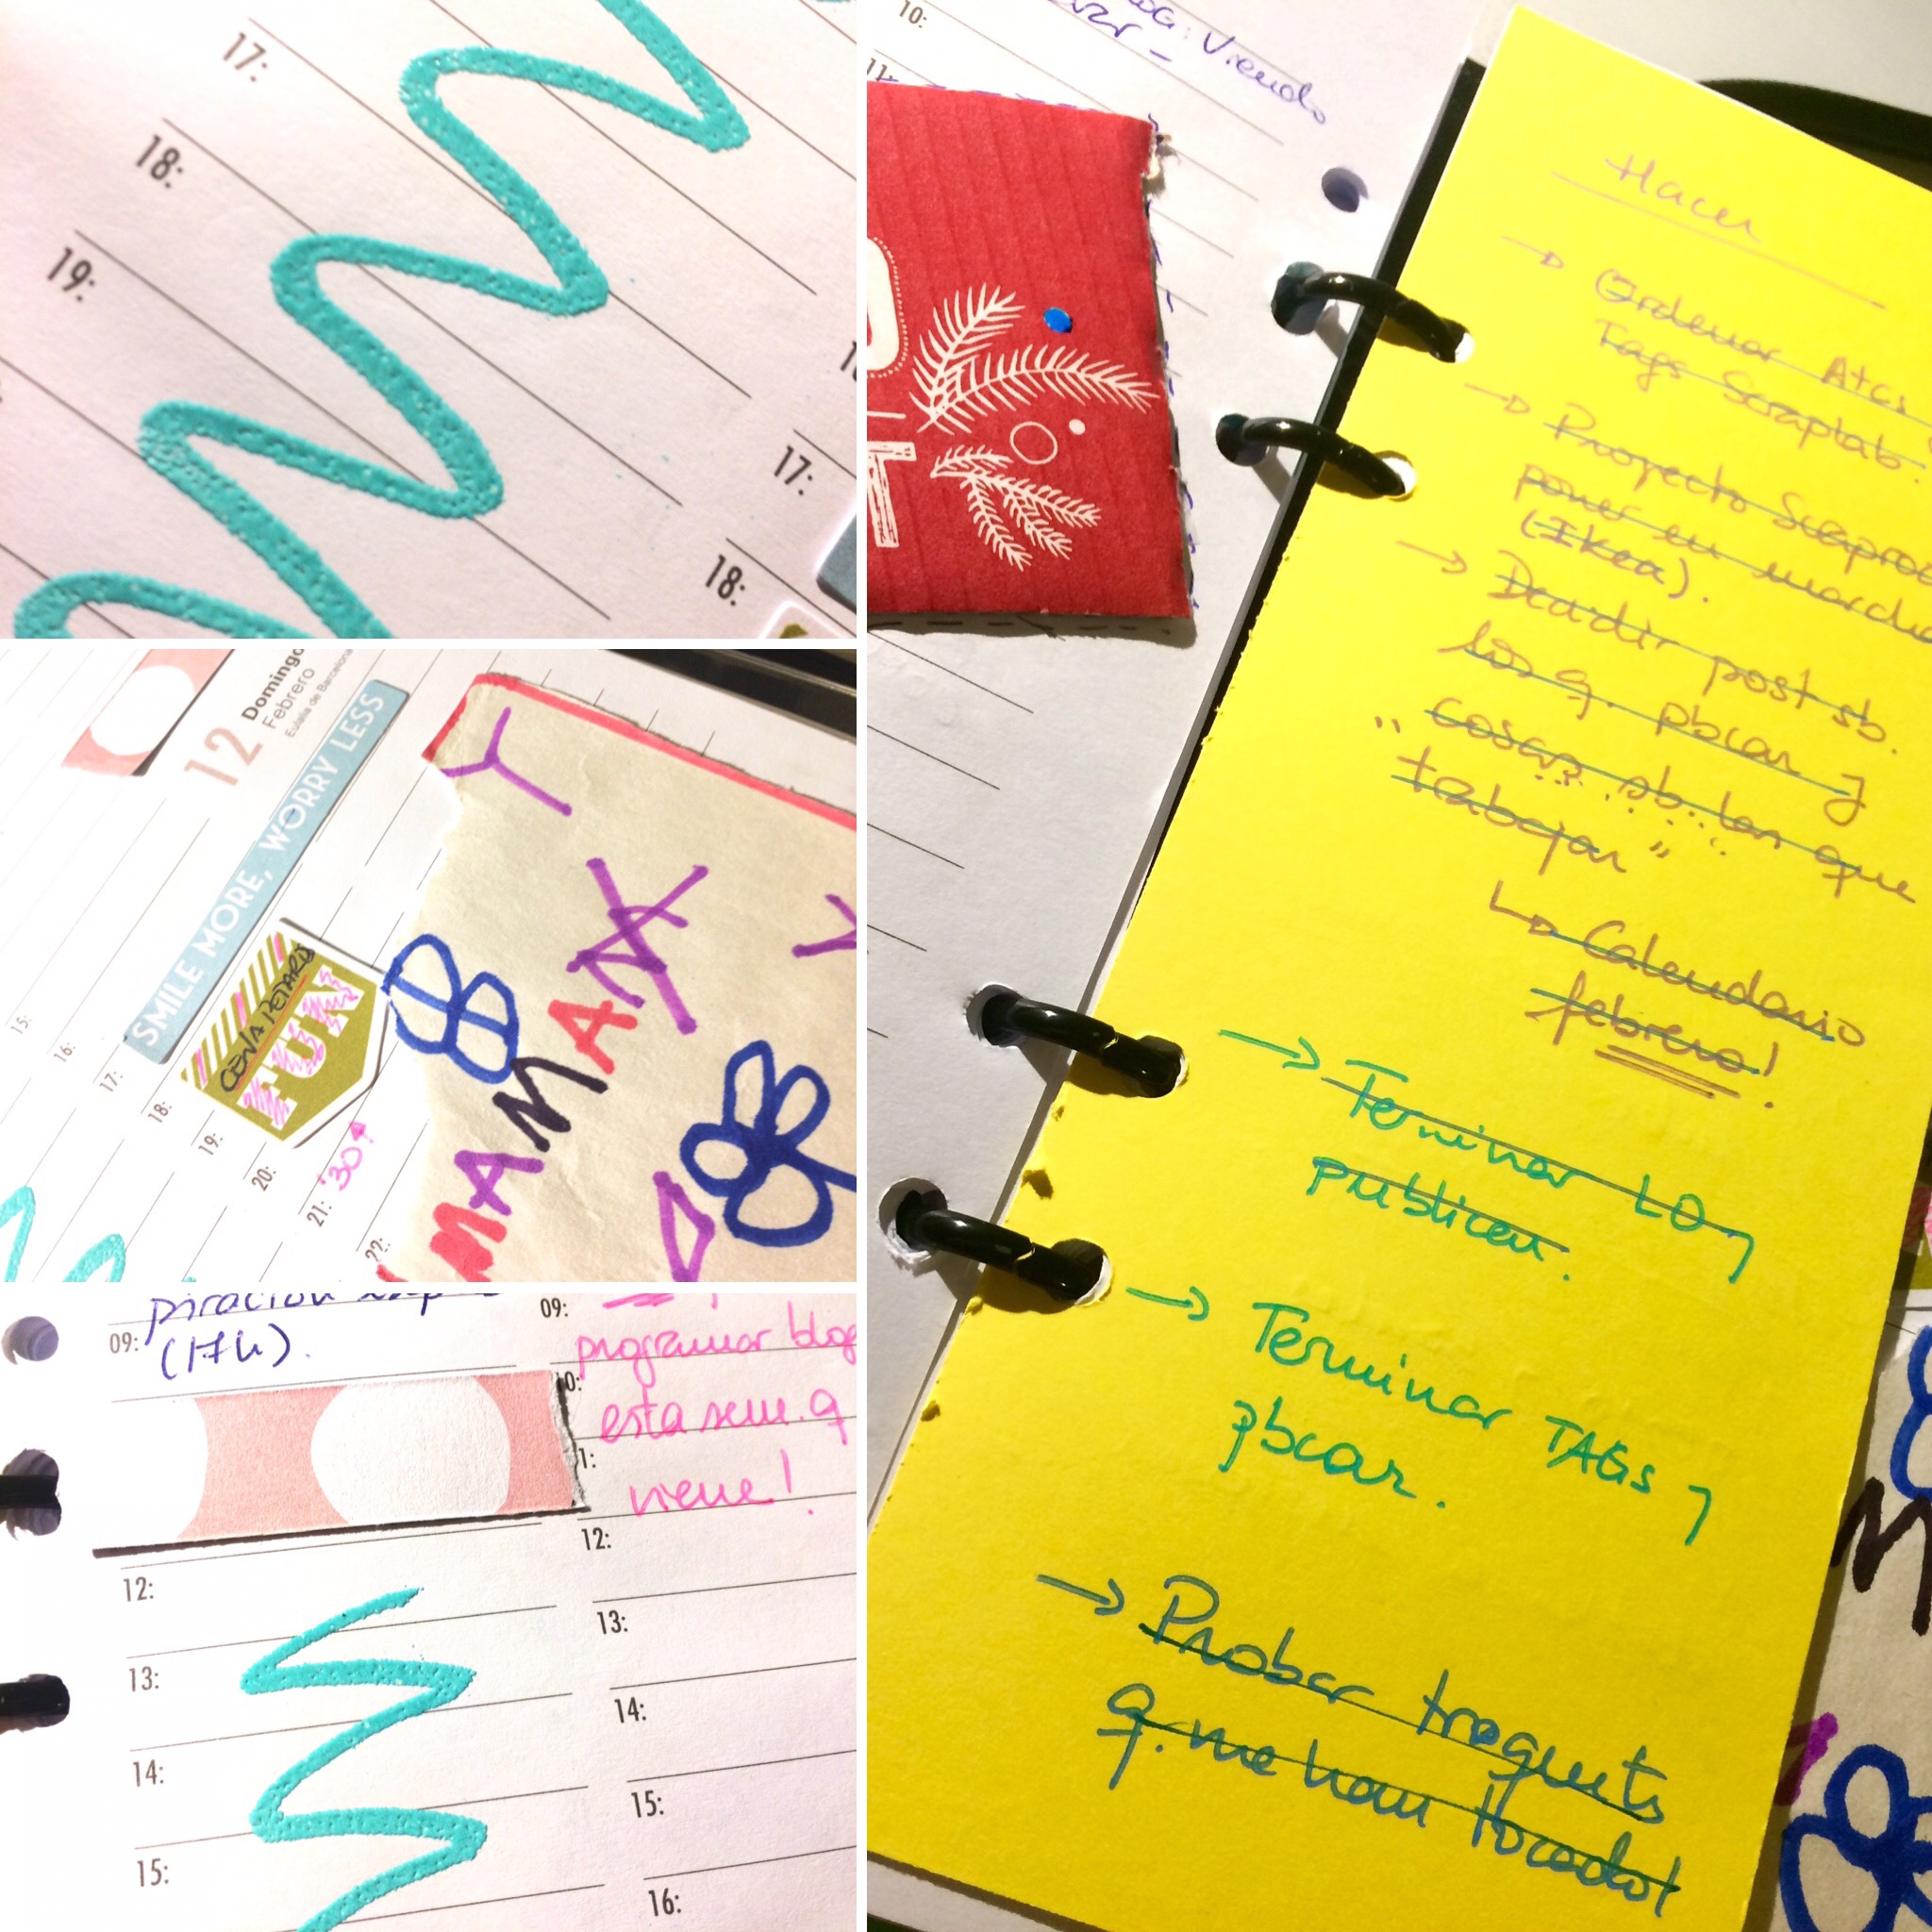 17:
18:
19:
17:
18:
12
Domingo
Febrero
Eulalia de Barcelona
SMILE MORE, WORRY LESS
CENA PETARDS
FUN
15:
16:
17:
18:
19:
20:
21:
'30
22:
Y
MAMA
09:
(17h).
12:
13:
14:
15:
09:
programar blog
esta sem. q
viene!
12:
13:
14:
15:
16:
10:
11:
Viendo
T
Hacer
→ Ordenar Atcs
Tags Scraplab.
→ Proyecto
poner en marcha
(Ikea).
→ Decidir post sb.
los q. pbcar y
"cosas sb. las que
trabajar"
↳ Calendario
febrero!
→ Terminar LO y
publicar.
→ Terminar TAGS y
pbcar.
→ Probar troquets
q. me han tocado!